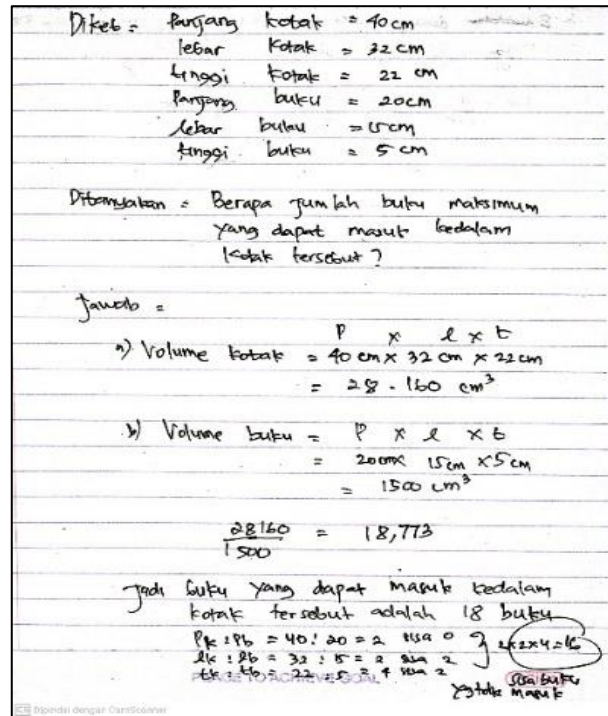 Diket = Panjang kotak = 40 cm
lebar kotak = 32 cm
tinggi kotak = 22 cm
Panjang buku = 20 cm
lebar buku = 15 cm
tinggi buku = 5 cm
Ditanyakan = Berapa jumlah buku maksimum
yang dapat masuk kedalam
kotak tersebut ?
Jawab =
P x l x t
a) Volume kotak = 40 cm x 32 cm x 22 cm
= 28.160 cm³
b) Volume buku = P x l x t
= 20 cm x 15 cm x 5 cm
= 1500 cm³
28160 / 1500 = 18,773
Jadi buku yang dapat masuk kedalam
kotak tersebut adalah 18 buku
Pk : Pb = 40 : 20 = 2 sisa 0
lk : lb = 32 : 15 = 2 sisa 2 } 2 x 2 x 4 = 16
tk : tb = 22 : 5 = 4 sisa 2
TO ACHIEVE GOAL
sisa buku
masuk
CS Dipindai dengan CamScanner